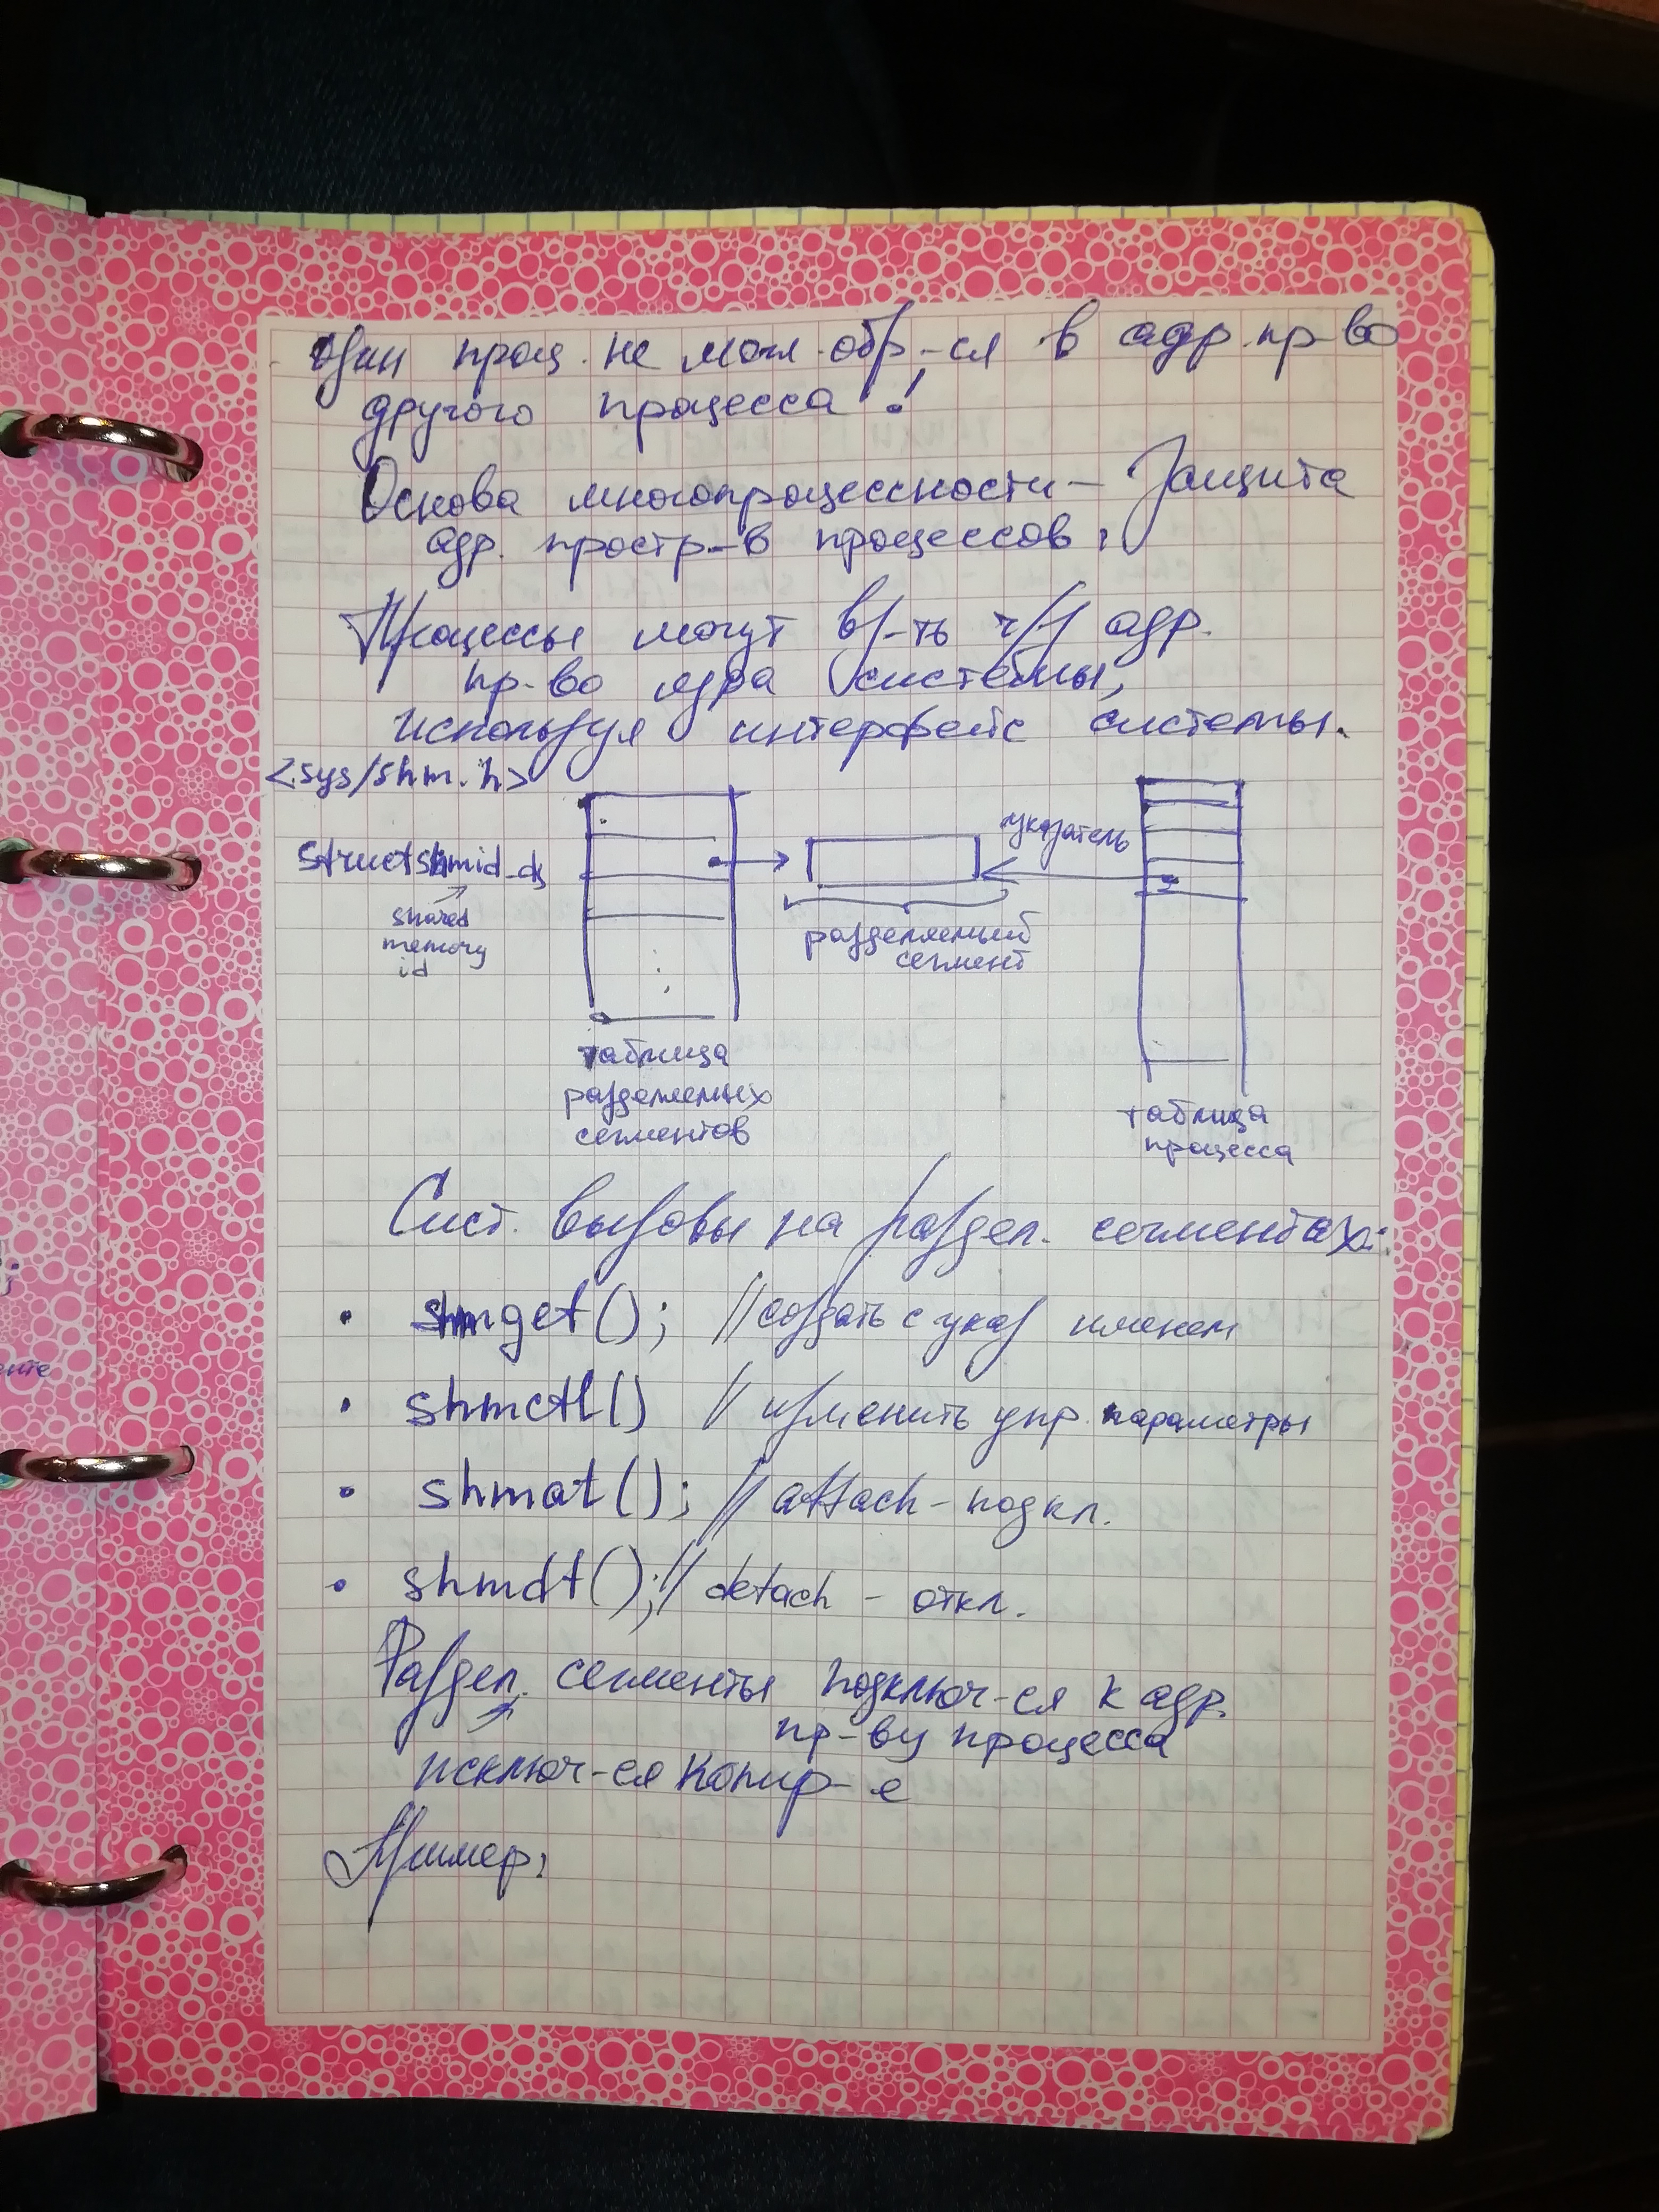 один проц. не мож. обр-ся в адр. пр-во
другого процесса!
Основа многопроцессности - Защита
адр. простр-в процессов.
Процессы могут вз-ть ч/з адр.
пр-во ядра системы,
используя интерфейс системы.
<sys/shm.h>
struct shmid_ds
shared
memory
id
указатель
разделяемый
сегмент
таблица
разделяемых
сегментов
таблица
процесса
Сист. вызовы на раздел. сегментах:
• shmget(); //создать с указ именем
• shmctl() // изменить упр. параметры
• shmat(); // attach - подкл.
• shmdt(); // detach - откл.
Раздел. сегменты подключ-ся к адр.
пр-ву процесса
исключ-ся копир-е
Пример: